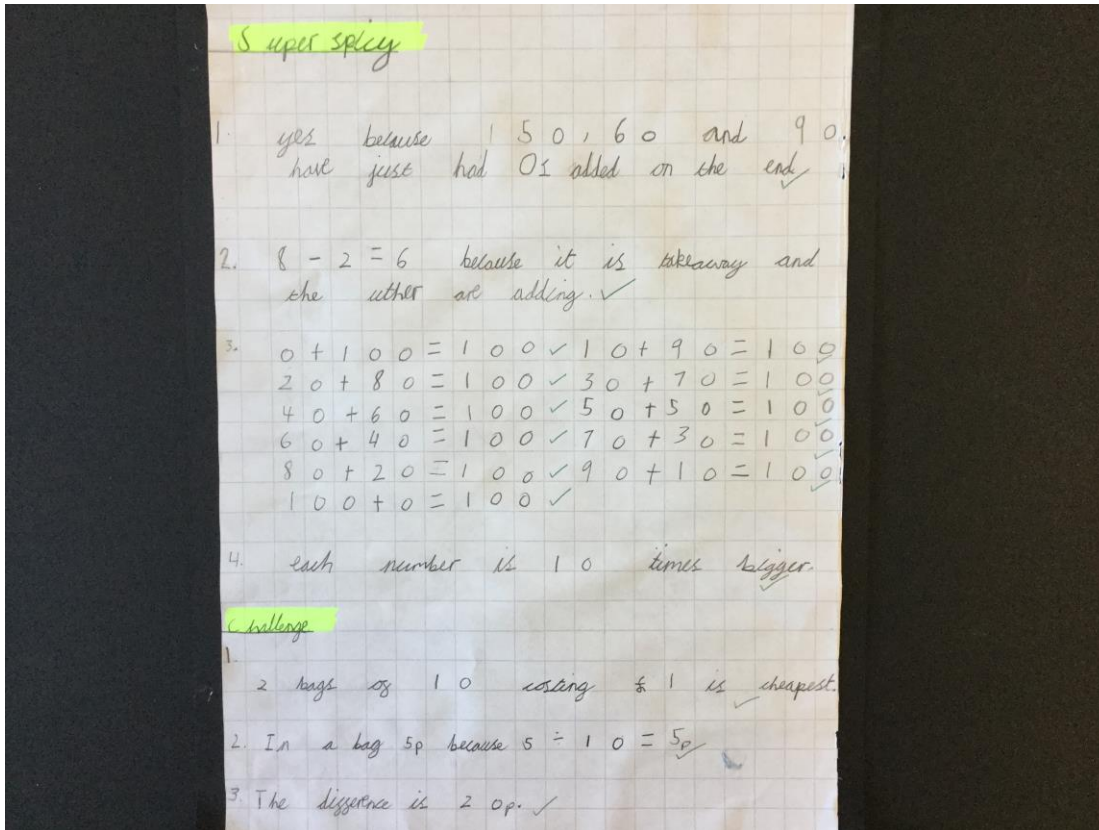 Super spicy
1. yes because 150, 60 and 90.
have just had 0s added on the end
2. 8 - 2 = 6 because it is takeaway and
the uther are adding.
3. 0 + 100 = 100 10 + 90 = 100
20 + 80 = 100 30 + 70 = 100
40 + 60 = 100 50 + 50 = 100
60 + 40 = 100 70 + 30 = 100
80 + 20 = 100 90 + 10 = 100
100 + 0 = 100
4. each number is 10 times bigger.
Challenge
1.
2 bags of 10 costing £1 is cheapest.
2. In a bag 5p because 5 ÷ 10 = 5p
3. The difference is 20p.